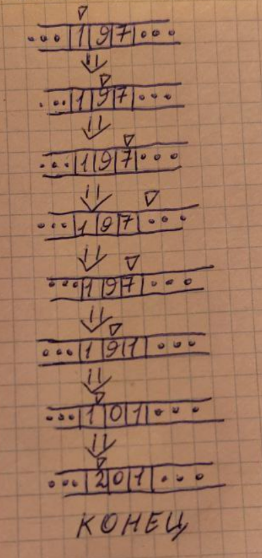 ... 1 9 7 ...
... 1 9 7 ...
... 1 9 7 ...
... 1 9 7 ...
... 1 9 7 ...
... 1 9 1 ...
... 1 0 1 ...
... 2 0 1 ...
КОНЕЦ